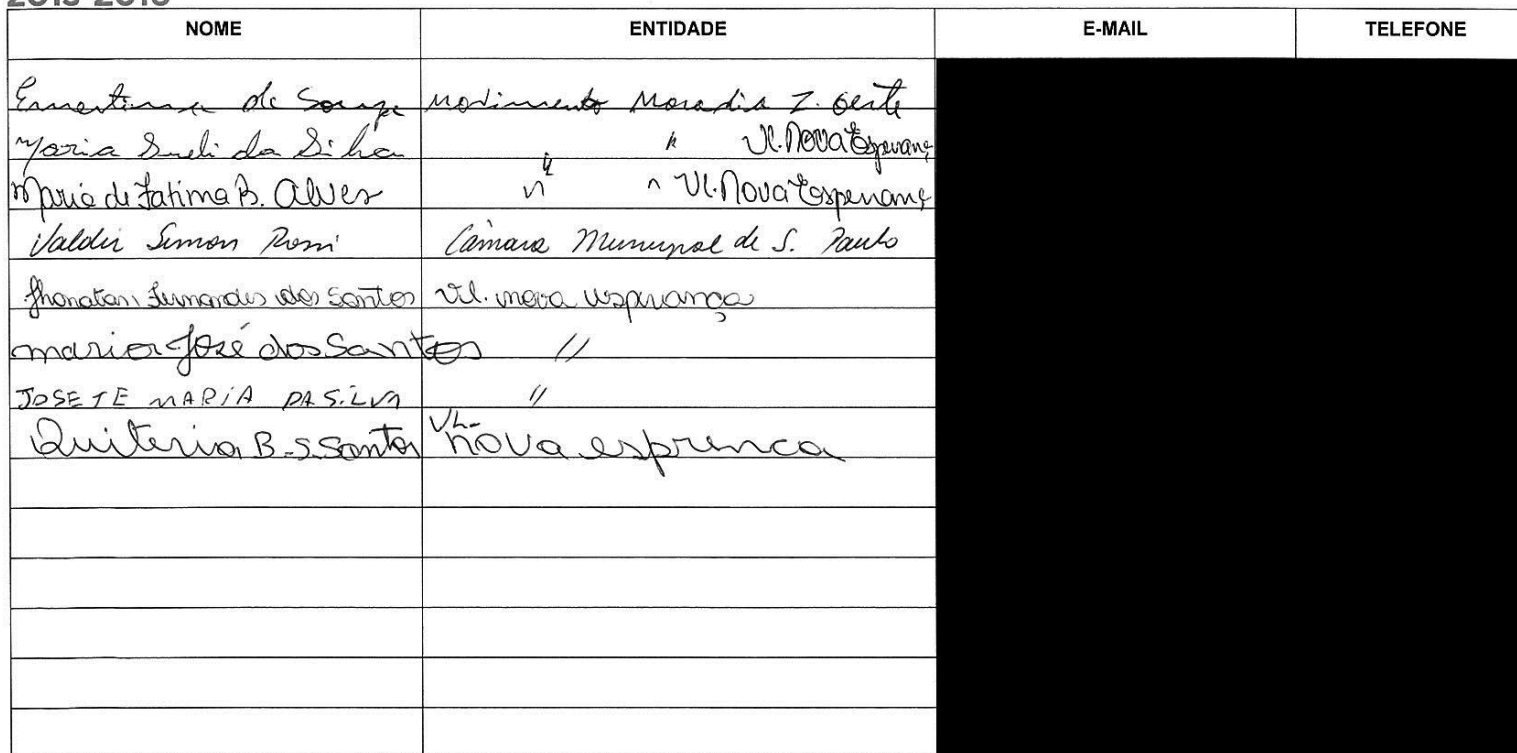 NOME ENTIDADE E-MAIL TELEFONE
Ernestina de Souza Movimento Moradia Z. Oeste
Maria Sueli da Silva " " Vl. Nova Esperanç
Maria de Fatima B. Alves " " Vl. Nova Esperanç
Valdir Simon Rossi Câmara Municipal de S. Paulo
Jhonatan Fernandes dos Santos Vil. nova esperança
maria José dos Santos "
JOSETE MARIA DA SiLVA "
Quiteria B. S. Santos VL- nova esprenca